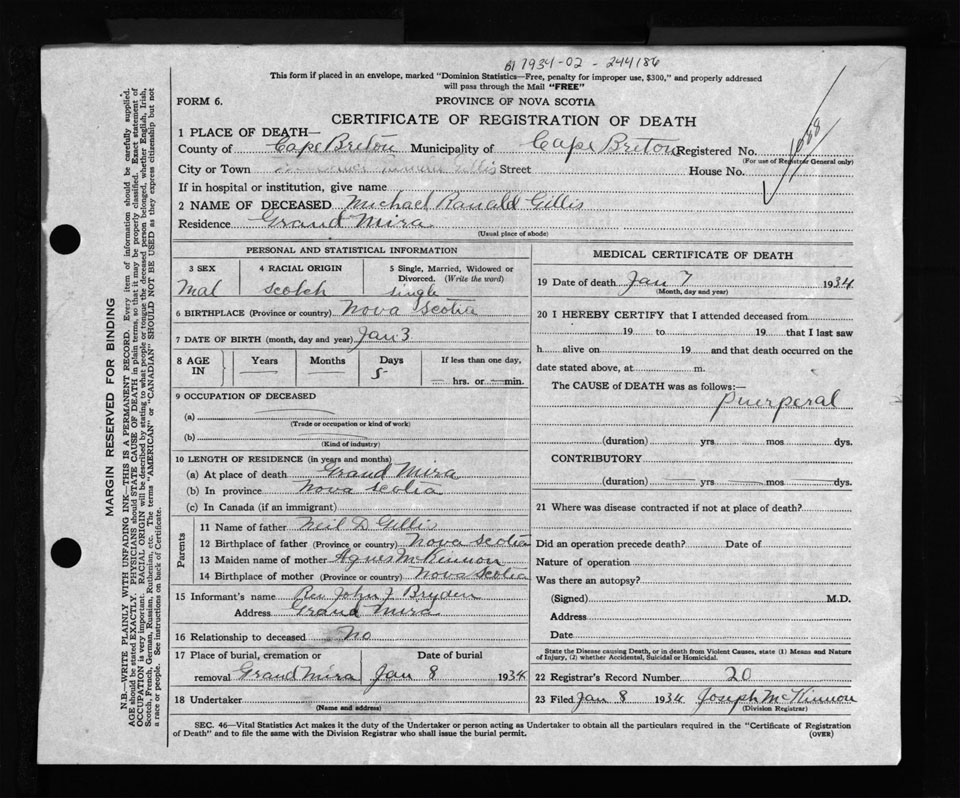 B1 1934-02-244186
This form if placed in an envelope, marked "Dominion Statistics—Free, penalty for improper use, $300," and properly addressed
will pass through the Mail "FREE"
FORM 6. PROVINCE OF NOVA SCOTIA
CERTIFICATE OF REGISTRATION OF DEATH
1088
1 PLACE OF DEATH—
County of Cape Breton Municipality of Cape Breton Registered No.
(For use of Registrar General only)
City or Town Gillis Street House No.
If in hospital or institution, give name
2 NAME OF DECEASED Michael Ranald Gillis
Residence Grand Mira
(Usual place of abode)
PERSONAL AND STATISTICAL INFORMATION
3 SEX 4 RACIAL ORIGIN 5 Single, Married, Widowed or
Divorced. (Write the word)
Mal scotch single
6 BIRTHPLACE (Province or country) Nova Scotia
7 DATE OF BIRTH (month, day and year) Jan 3
8 AGE IN Years Months Days If less than one day,
5 hrs. or min.
9 OCCUPATION OF DECEASED
(a)
(Trade or occupation or kind of work)
(b)
(Kind of industry)
10 LENGTH OF RESIDENCE (in years and months)
(a) At place of death Grand Mira
(b) In province Nova Scotia
(c) In Canada (if an immigrant)
Parents
11 Name of father Neil D Gillis
12 Birthplace of father (Province or country) Nova Scotia
13 Maiden name of mother Agnes McKinnon
14 Birthplace of mother (Province or country) Nova Scotia
15 Informant's name Rev John J Bryden
Address Grand Mira
16 Relationship to deceased No
17 Place of burial, cremation or Date of burial
removal Grand Mira Jan 8 1934
18 Undertaker
(Name and address)
MEDICAL CERTIFICATE OF DEATH
19 Date of death Jan 7 1934
(Month, day and year)
20 I HEREBY CERTIFY that I attended deceased from
19 to 19 that I last saw
h alive on 19 and that death occurred on the
date stated above, at m.
The CAUSE of DEATH was as follows:—
Puerperal
(duration) yrs. mos dys.
CONTRIBUTORY
(duration) yrs. mos. dys.
21 Where was disease contracted if not at place of death?
Did an operation precede death? Date of
Nature of operation
Was there an autopsy?
(Signed) M.D.
Address
Date
State the Disease causing Death, or in death from Violent Causes, state (1) Means and Nature
of Injury, (2) whether Accidental, Suicidal or Homicidal.
22 Registrar's Record Number 20
23 Filed Jan 8 1934 Joseph McKinnon
(Division Registrar)
SEC. 46—Vital Statistics Act makes it the duty of the Undertaker or person acting as Undertaker to obtain all the particulars required in the "Certificate of Registration
of Death" and to file the same with the Division Registrar who shall issue the burial permit. (OVER)
MARGIN RESERVED FOR BINDING
N.B.—WRITE PLAINLY WITH UNFADING INK—THIS IS A PERMANENT RECORD. Every item of information should be carefully supplied.
AGE should be stated EXACTLY. PHYSICIANS should STATE CAUSE OF DEATH in plain terms, so that it may be properly classified. Exact statement of
OCCUPATION is very important. RACIAL ORIGIN will be described by stating to what people or tongue the deceased person belonged, whether English, Irish,
Scotch, French, German, Russian, Ruthenian, etc. The terms "AMERICAN" or "CANADIAN" SHOULD NOT BE USED as they express citizenship but not
a race or people. See instructions on back of Certificate.